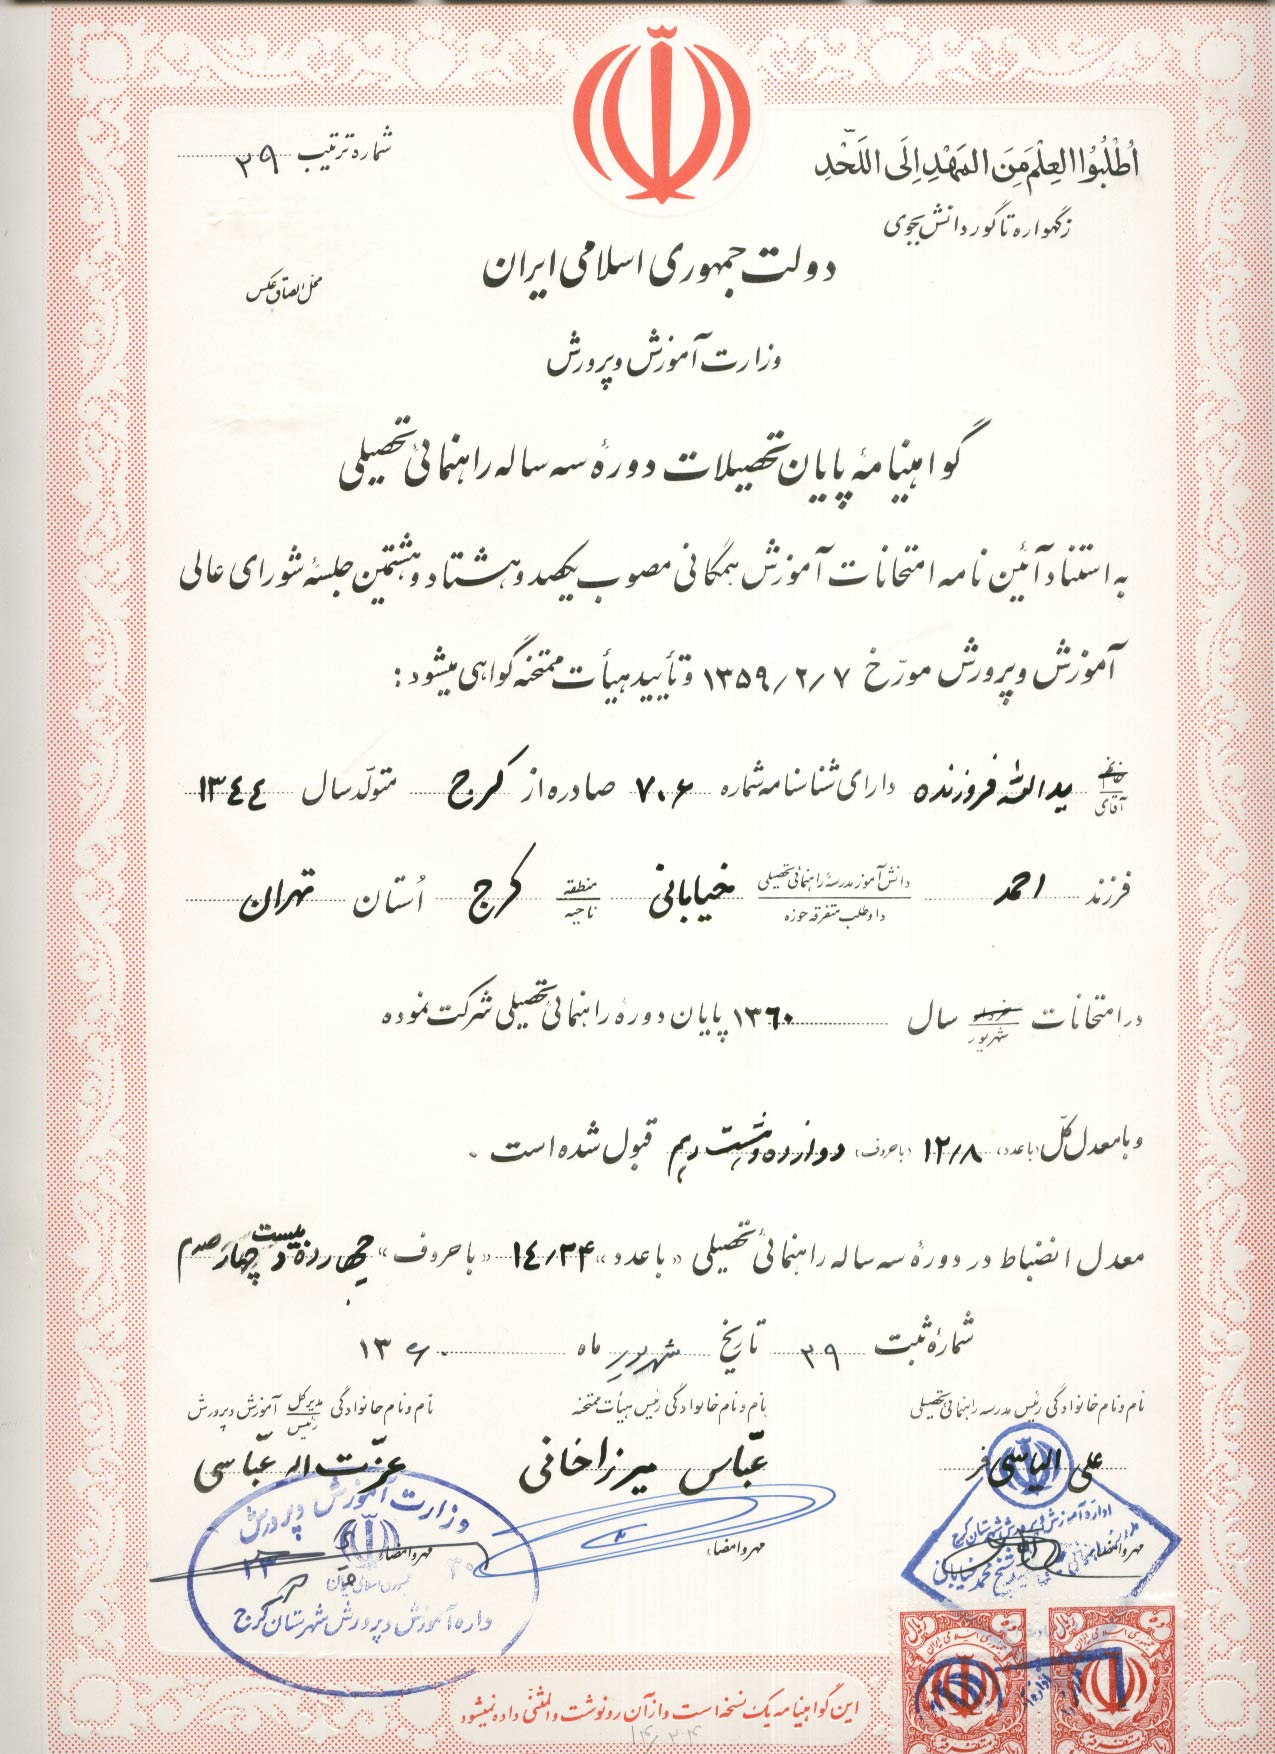 اُطْلُبُوا العِلْمَ مِنَ المَهْدِ اِلَی اللَّحْدِ
زگهواره تا گور دانش بجوی
شماره ترتیب ۳۹
محل الصاق عکس
دولت جمهوری اسلامی ایران
وزارت آموزش و پرورش
گواهینامهٔ پایان تحصیلات دورهٔ سه ساله راهنمائی تحصیلی
به استناد آئین نامه امتحانات آموزش همگانی مصوب یکصد و هشتاد و هشتمین جلسهٔ شورای عالی
آموزش و پرورش مورّخ ۱۳۵۹/۲/۷ و تأیید هیأت ممتحنه گواهی میشود :
خانم آقای یدالله فروزنده دارای شناسنامه شماره ۷۰۶ صادره از کرج متولّد سال ۱۳۴۴
فرزند احمد دانش آموز مدرسهٔ راهنمائی تحصیلی داوطلب متفرقه حوزه خیابانی منطقه ناحیه کرج اُستان تهران
در امتحانات خرداد شهریور سال ۱۳۶۰ پایان دورهٔ راهنمائی تحصیلی شرکت نموده
و با معدل کلّ (با عدد) ۱۲/۸ (با حروف) دوازده و هشت دهم قبول شده است .
معدل انضباط در دورهٔ سه ساله راهنمائی تحصیلی «با عدد» ۱۴/۲۴ «با حروف» چهارده و بیست و چهار صدم
شمارهٔ ثبت ۳۹ تاریخ شهریور ماه ۱۳۶۰
نام و نام خانوادگی رئیس مدرسه راهنمائی تحصیلی
نام و نام خانوادگی رئیس هیأت ممتحنه
نام و نام خانوادگی مدیر کل رئیس آموزش و پرورش
علی الیاسی فر
عبّاس میرزاخانی
عزّت اله عبّاسی
مهر و امضاء
مهر و امضاء
مهر و امضاء
اداره آموزش و پرورش شهرستان کرج
شیخ محمد خیابانی
وزارت آموزش و پرورش
جمهوری اسلامی ایران
اداره آموزش و پرورش شهرستان کرج
ریال
جمهوری اسلامی ایران
متفرقه
ریال
جمهوری اسلامی ایران
متفرقه
این گواهینامه یک نسخه است و از آن رونوشت و المثنی داده نمیشود
۱۴/۲۴